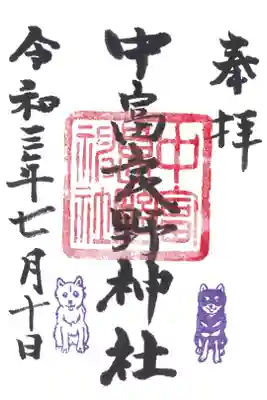 奉拝
中富良野神社
令和三年七月十日
中富
神社